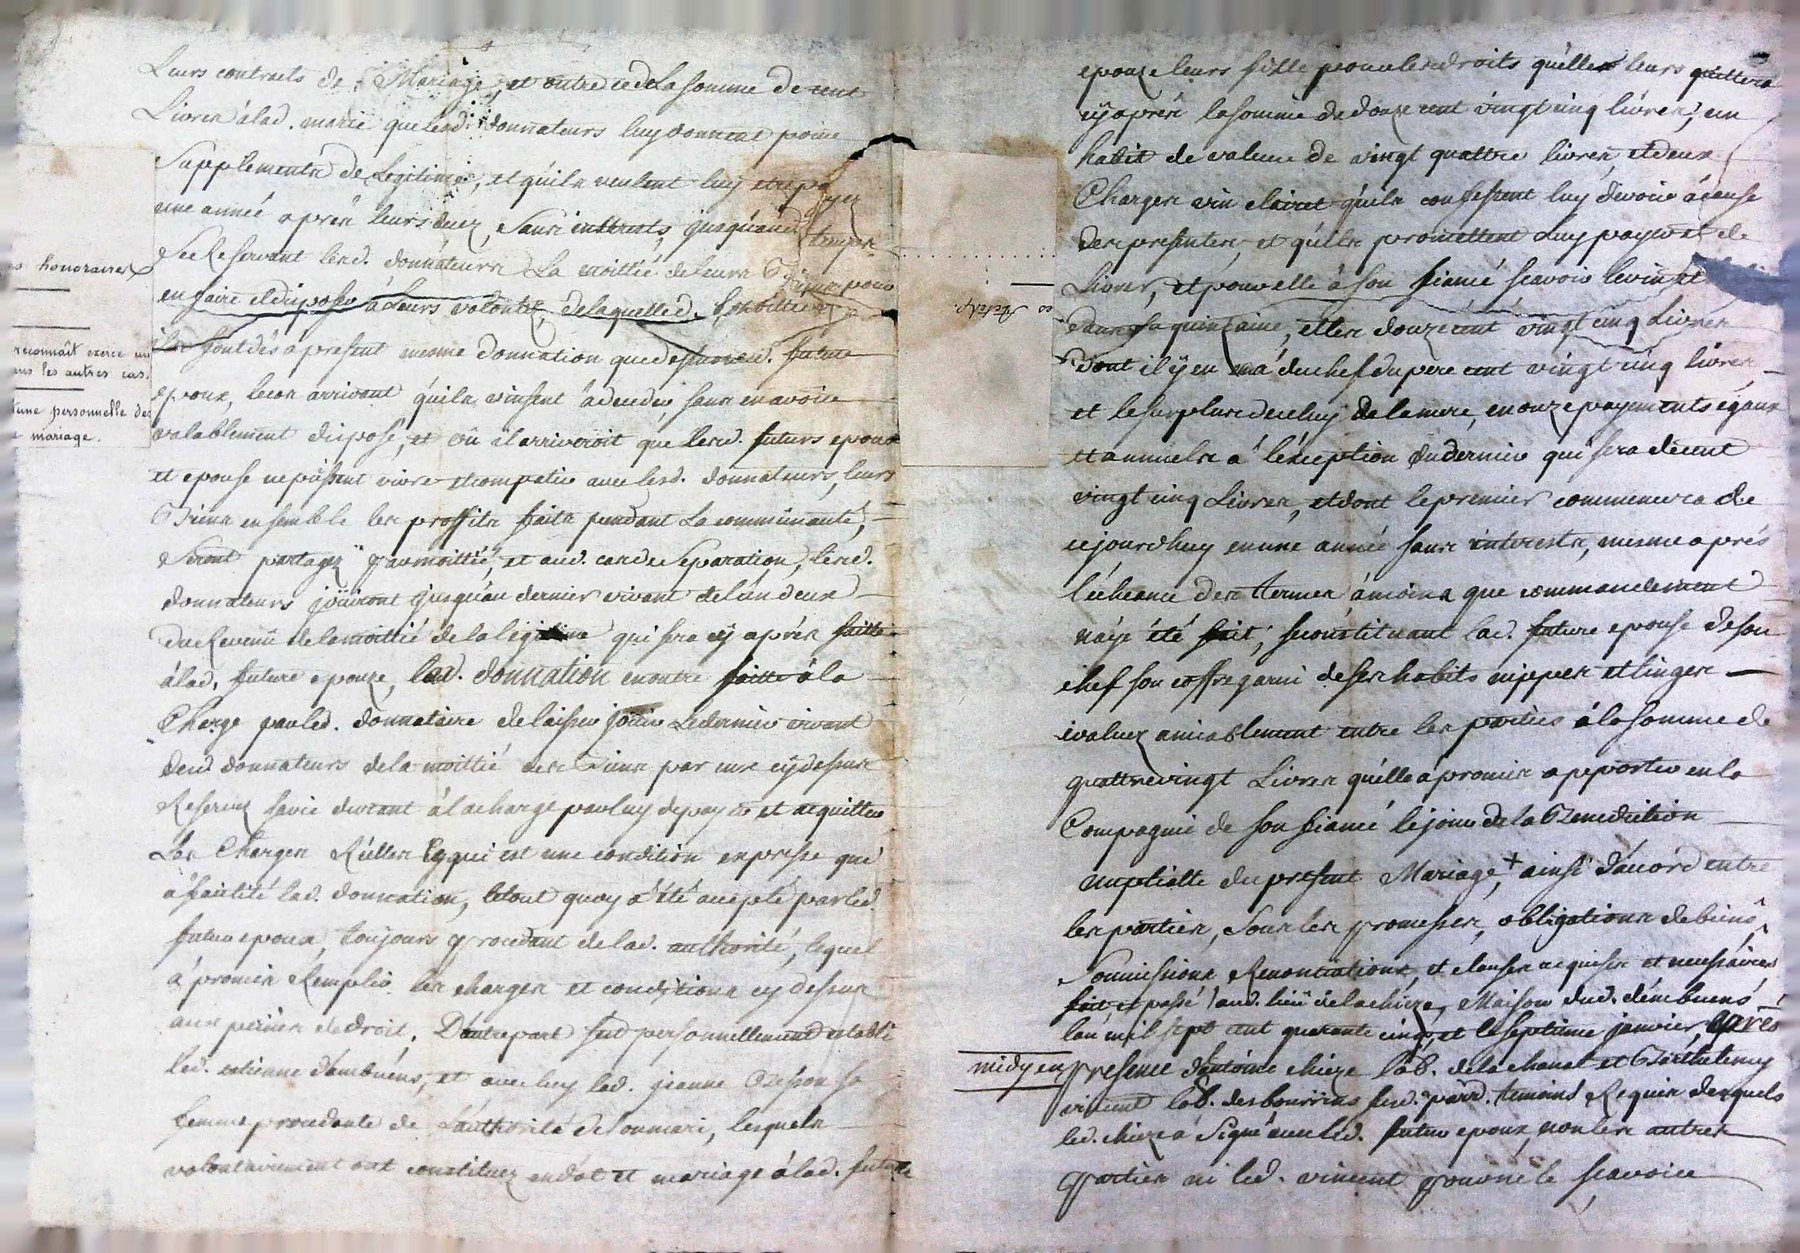 Leurs contracts de Mariage, et outre ce de la somme de cent
Livres à lad. marie que lesd. donnateurs luy donnent pour
Supplementz de Legitime, et quils veulent luy etre payez
une année après leurs decez, Sans intherets jusquau temps
Se Reservant lesd. donnateurs La moittié de leurs Biens pour
en faire et disposer à Leurs volontés, de laquelle d. moittié
ils font dés à present mesme donnation que dessus aud. futur
epoux, le cas arrivant quils vinsent à deceder sans en avoir
valablement disposé, et où il arriveroit que lesd. futurs epoux
et epouse ne pussent vivre et compatir avec lesd. donnateurs, leurs
Biens ensemble les proffits faits pendant La communauté,
Seront partagez par moittié, et aud. cas de Separation, lesd.
donnateurs jouiront jusquau dernier vivant de l'un deux
du Revenu de la moittié de la legitime qui sera cy après faitte
à lad. future epouze, lad. donnation en outre faitte à la
Charge par led. donnataire de laisser jouir Le dernier vivant
desd. donnateurs de la moittié des Biens par eux cy dessus
Reservez savie durant à la charge par luy de payer et acquitter
Les Charges Réelles Ce qui est une condition expresse qui
à faitité lad. donnation, Le tout quoy a été accepté par led.
futur epoux, toujours procedant de lad. authorité, lequel
à promis Remplir les charges et conditions cy dessus
aux peines de droit. D'autre part sest personnellement etabli
led. estienne dambuéns, et avec luy lad. jeanne Besson sa
femme procedante de L'authorité de son mari, lesquels
volontairement ont constituez en dot et mariage à lad. future
o honoraires
reconnaît exerce un
ans les autres cas.
tune personnelle des
mariage.
epouze leurs fille pour les droits quelles leurs quittera
cy après la somme de douze cent vingt cinq livres, un
habit de valeur de vingt quattre livres, et deux
Charges vin clairet quils confessent luy devoir à cause
des presentes, et quils promettent luy payer et de
Livrer, et pour elle à son fiancé scavoir le vin et
dans la quinzaine, et les douze cent vingt cinq Livres
dont il y en a du chef du pere cent vingt cinq livres,
et le surplus de celuy de la mere, en onze payements égaux
et annuels à l'éxception du dernier qui sera de cent
vingt cinq Livres, et dont le premier commencera de
cejourdhuy en une année sans interests, mesme après
l'écheance des termes à moins que commandement
n'aye été fait; se constituant lad. future epouse de son
chef son coffre garni de ses habits nippes et linges
evaluez amiablement entre les parties à la somme de
quattrevingt Livres quelle a promis apporter en la
Compagnie de son fiancé le jour de la Benediction
nuptialle du present Mariage, + ainsi d'acord entre
les parties, Sous les promesses, obligations de biens,
Soumissions, Renontiations, et clauses requises et necessaires
fait et passé aud. lieu de la chieze, Maison dud. dambuens
lan mil sept cent quarante cinq, et le septieme janvier après
midy en presence d'antoine chieze lab. de la chanal et Barthelemy
vincent lab. des bourrins sur d. parr. temoins Requis desquels
led. chieze a Signé avec led. futur epoux, non les autres
parties ni led. vincent pour ne le scavoir